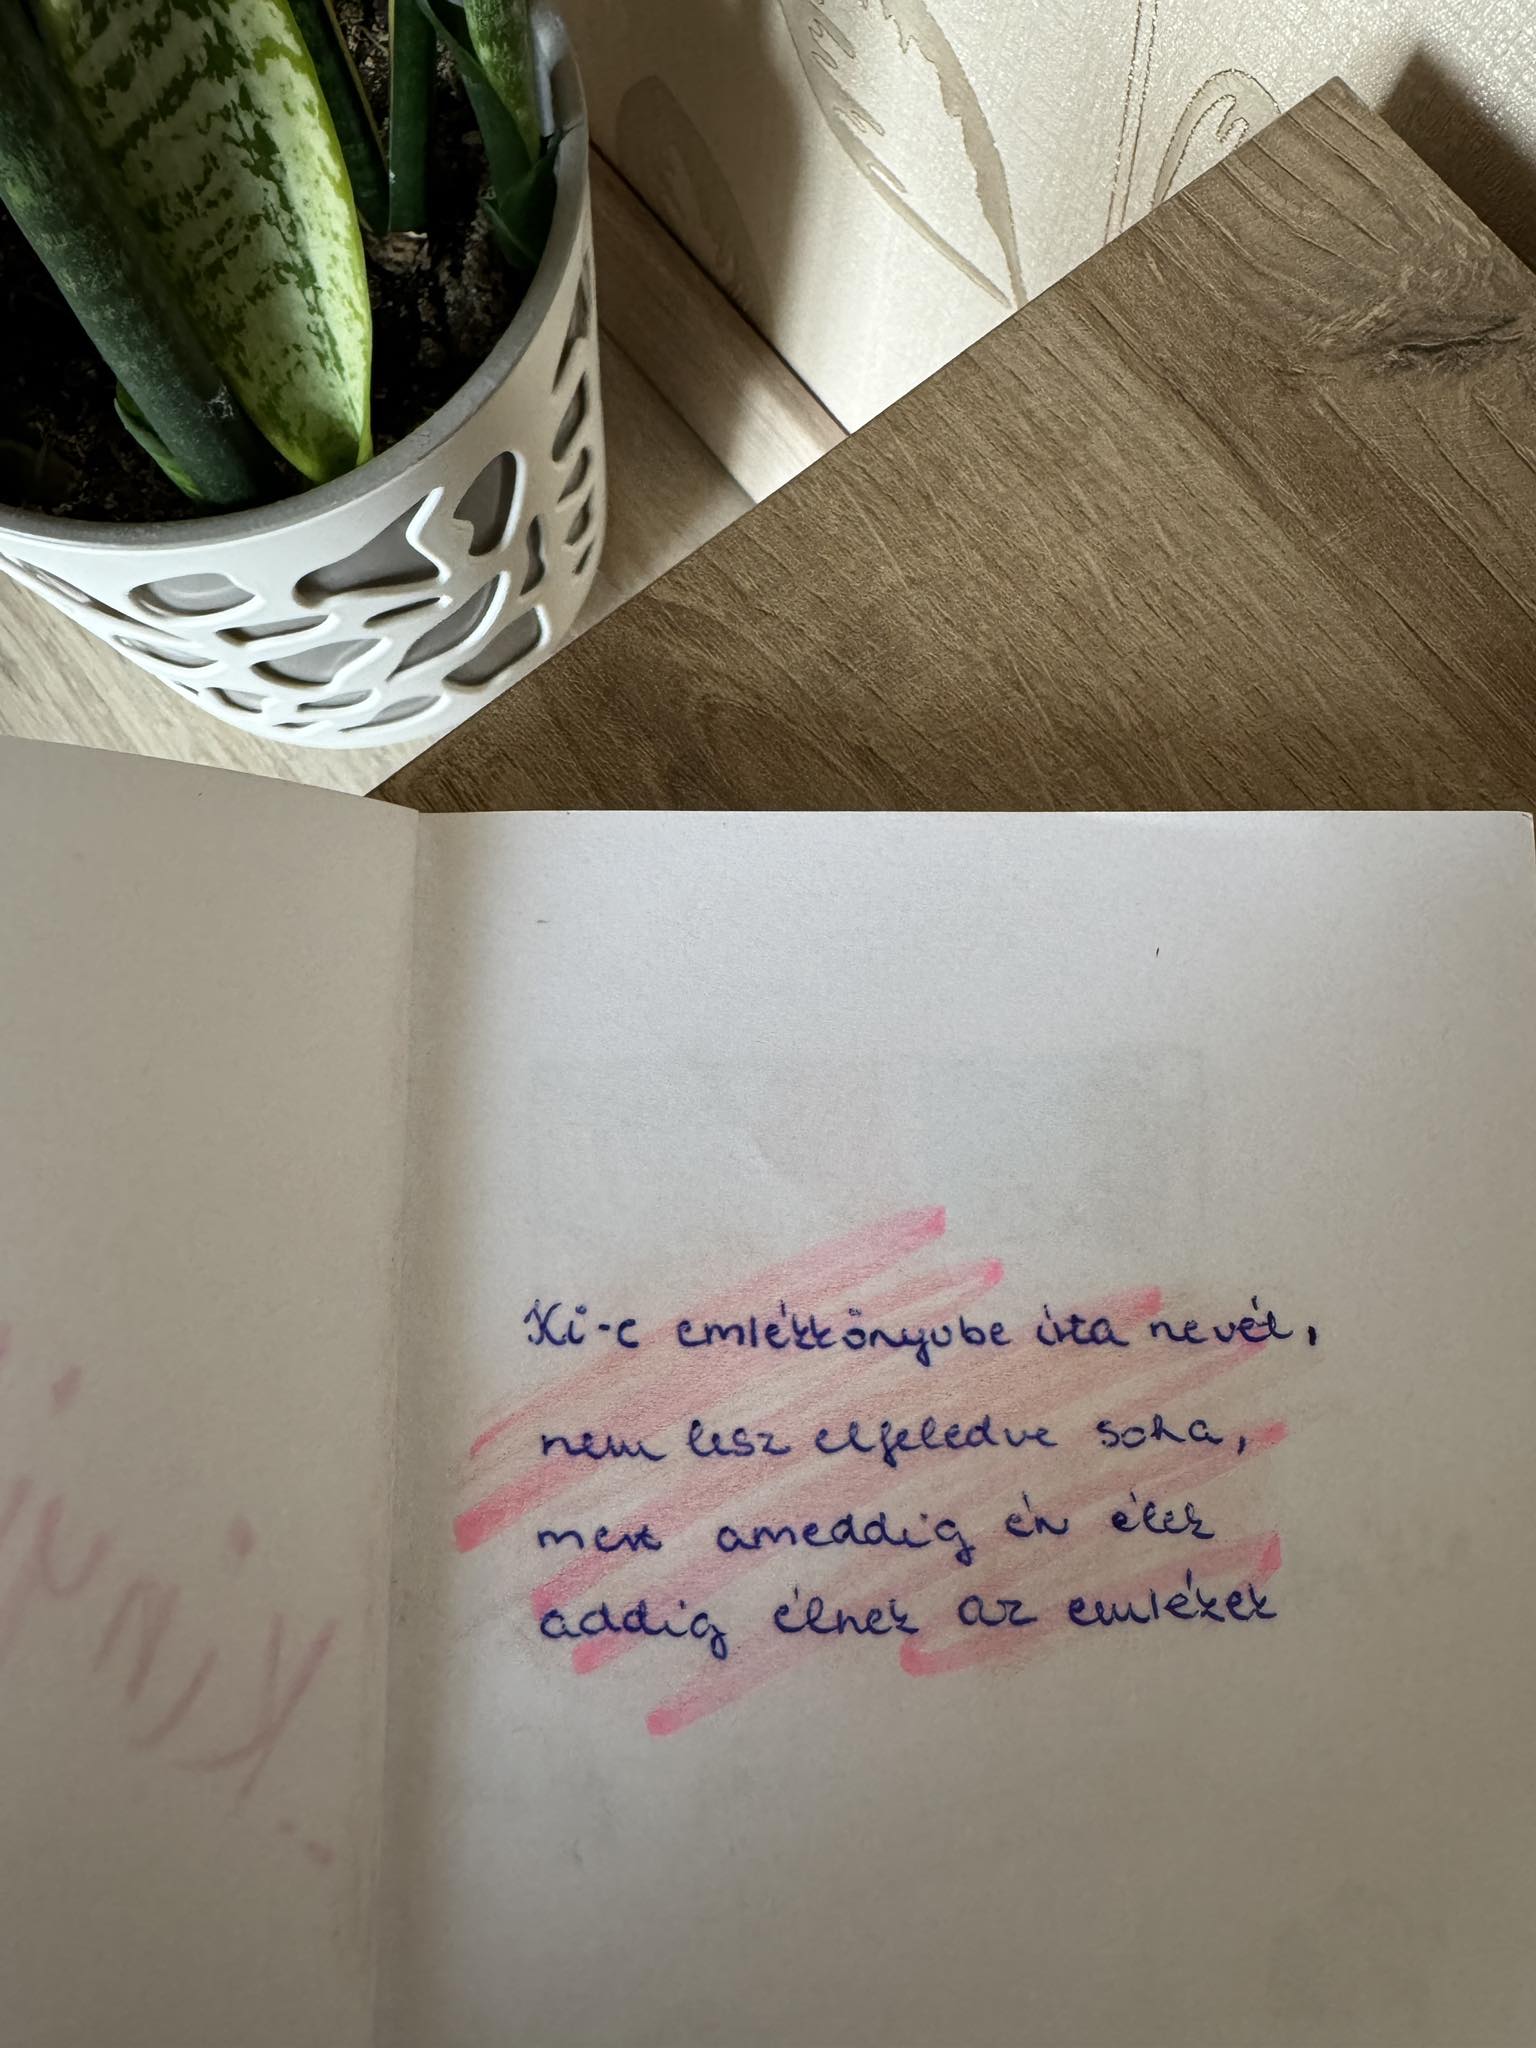 Ki-e emlékkönyvbe írta nevét,
nem lesz elfeledve soha,
mert ameddig én élek
addig élnek az emlékek